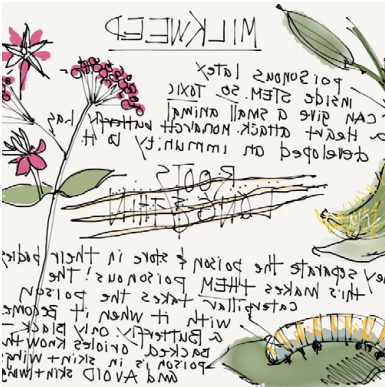 MILKWEED
POISONOUS Latex
inside STEM. SO TOXIC
can give a small animal
a Heart attack. Monarch butterfly has
developed an immunity to it
ROOTS
LONG & THIN
hey separate the poison & store in their bodies
this makes THEM poisonous! The
caterpillar takes the poison
with it when it Becomes
a Butterfly. Only Black-
Backed orioles know th
poison is in skin + wing
and AVOID skin + wing